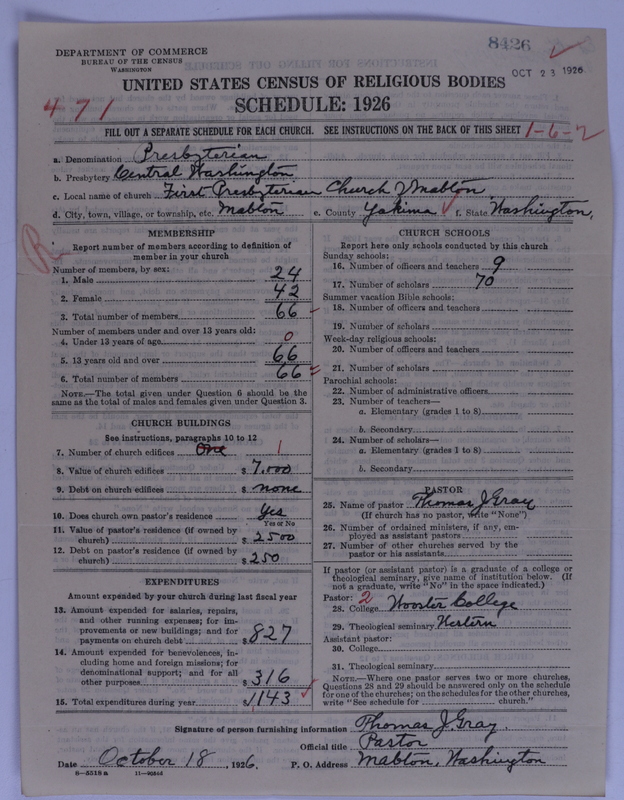 8426
OCT 23 1926
DEPARTMENT OF COMMERCE
BUREAU OF THE CENSUS
WASHINGTON
UNITED STATES CENSUS OF RELIGIOUS BODIES
SCHEDULE: 1926
471
FILL OUT A SEPARATE SCHEDULE FOR EACH CHURCH. SEE INSTRUCTIONS ON THE BACK OF THIS SHEET 1-6-2
a. Denomination Presbyterian
b. Presbytery Central Washington
c. Local name of church First Presbyterian Church of Mabton
d. City, town, village, or township, etc. Mabton e. County Yakima f. State Washington,
MEMBERSHIP
Report number of members according to definition of
member in your church
Number of members, by sex:
1. Male 24
2. Female 42
3. Total number of members 66
Number of members under and over 13 years old:
4. Under 13 years of age 0
5. 13 years old and over 66
6. Total number of members 66
NOTE.—The total given under Question 6 should be the
same as the total of males and females given under Question 3.
CHURCH BUILDINGS
See instructions, paragraphs 10 to 12
7. Number of church edifices One 1
8. Value of church edifices $ 7,000
9. Debt on church edifices $ none
10. Does church own pastor's residence Yes
Yes or No
11. Value of pastor's residence (if owned by
church) $ 2500
12. Debt on pastor's residence (if owned by
church) $ 250
EXPENDITURES
Amount expended by your church during last fiscal year
13. Amount expended for salaries, repairs,
and other running expenses; for im-
provements or new buildings; and for
payments on church debt $ 827
14. Amount expended for benevolences, in-
cluding home and foreign missions; for
denominational support; and for all
other purposes $ 316
15. Total expenditures during year $ 1143
CHURCH SCHOOLS
Report here only schools conducted by this church
Sunday schools:
16. Number of officers and teachers 9
17. Number of scholars 70
Summer vacation Bible schools:
18. Number of officers and teachers
19. Number of scholars
Week-day religious schools:
20. Number of officers and teachers
21. Number of scholars
Parochial schools:
22. Number of administrative officers
23. Number of teachers—
a. Elementary (grades 1 to 8)
b. Secondary
24. Number of scholars—
a. Elementary (grades 1 to 8)
b. Secondary
PASTOR
25. Name of pastor Thomas J Gray
(If church has no pastor, write "None")
26. Number of ordained ministers, if any, em-
ployed as assistant pastors
27. Number of other churches served by the
pastor or his assistants
If pastor (or assistant pastor) is a graduate of a college or
theological seminary, give name of institution below. (If
not a graduate, write "No" in the space indicated.)
Pastor: 2
28. College Wooster College
29. Theological seminary Western
Assistant pastor:
30. College
31. Theological seminary
NOTE.—Where one pastor serves two or more churches,
Questions 28 and 29 should be answered only on the schedule
for one of the churches; on the schedules for the other churches,
write "See schedule for church."
Signature of person furnishing information Thomas J Gray.
Official title Pastor
Date October 18, 1926. P. O. Address Mabton, Washington
8—5518 a